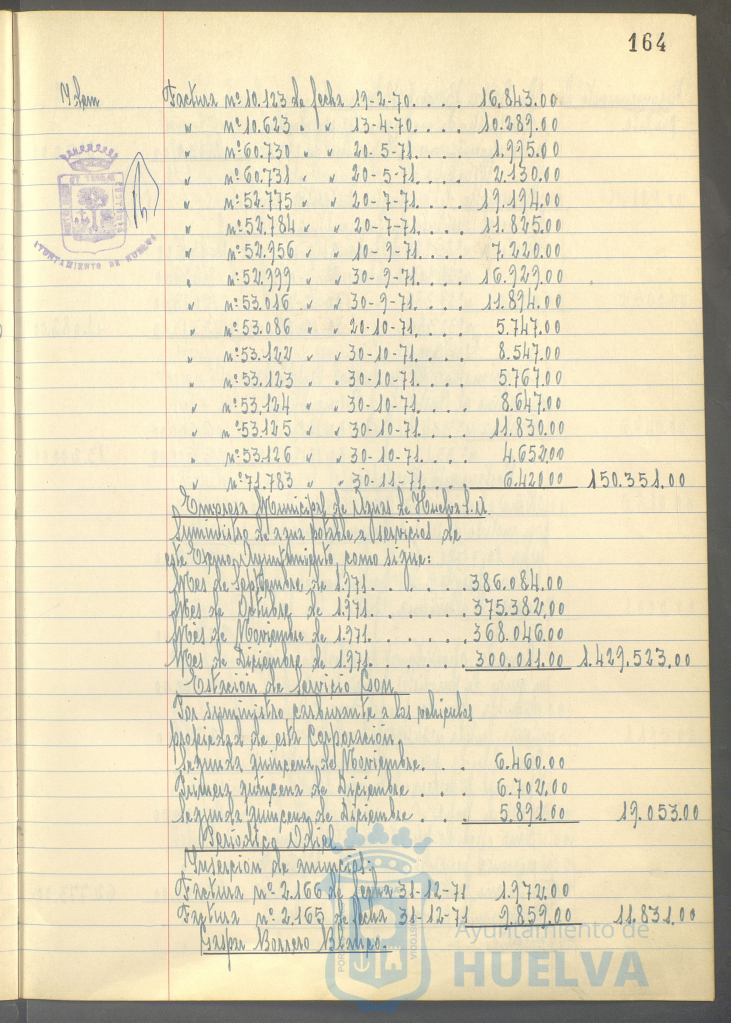 164
Idem Factura nº 10.123 de fecha 19-2-70. . . . 16.843.00
" nº 10.623 " " 13-4-70. . . . 10.289.00
" nº 60.730 " " 20-5-71. . . . 1.995.00
" nº 60.731 " " 20-5-71. . . . 2.130.00
" nº 52.775 " " 20-7-71. . . . 19.194.00
" nº 52.784 " " 20-7-71. . . . 11.825.00
" nº 52.956 " " 10-9-71. . . . 7.220.00
" nº 52.999 " " 30-9-71. . . . 16.929.00
" nº 53.016 " " 30-9-71. . . . 11.894.00
" nº 53.086 " " 20-10-71. . . . 5.747.00
" nº 53.122 " " 30-10-71. . . . 8.547.00
" nº 53.123 " " 30-10-71. . . . 5.767.00
" nº 53.124 " " 30-10-71. . . . 8.647.00
" nº 53.125 " " 30-10-71. . . . 11.830.00
" nº 53.126 " " 30-10-71. . . . 4.652.00
" nº 71.783 " " 30-11-71. . . . 6.420.00 150.351.00
AYUNTAMIENTO DE HUELVA
Empresa Municipal de Aguas de Huelva S.A.
Suministro de agua potable a servicios de
este Excmo. Ayuntamiento, como sigue:
Mes de Septiembre de 1.971. . . . . . 386.084.00
Mes de Octubre de 1.971. . . . . . 375.382.00
Mes de Noviembre de 1.971. . . . . . 368.046.00
Mes de Diciembre de 1.971. . . . . . 300.011.00 1.429.523.00
Estación de Servicio
Por suministro carburante a los vehículos
propiedad de esta Corporación
Segunda quincena de Noviembre. . . . 6.460.00
Primera quincena de Diciembre . . . 6.702.00
Segunda quincena de Diciembre . . . 5.891.00 19.053.00
Periódico Odiel
Inserción de anuncios:
Factura nº 2.166 de fecha 31-12-71 1.972.00
Factura nº 2.165 de fecha 31-12-71 9.859.00 11.831.00
Gaspar Borrero Blanco.
Ayuntamiento de
HUELVA